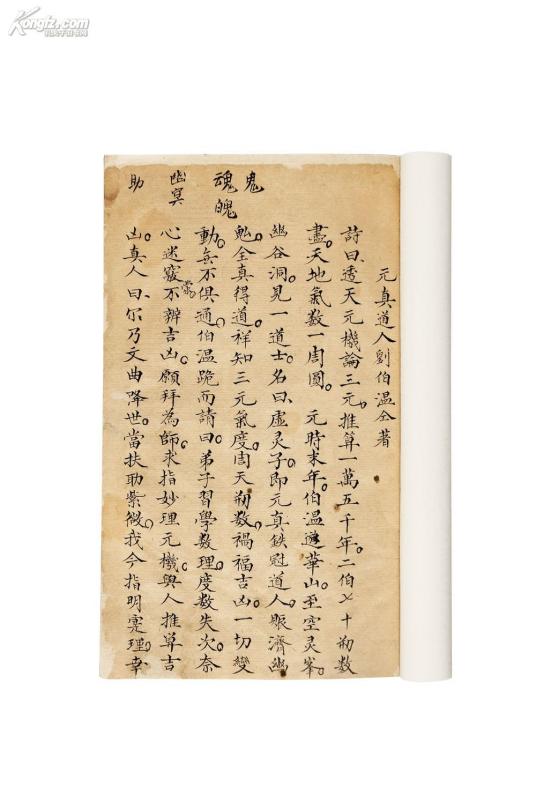 元真道人劉伯温仝著
詩曰透天元機論三元。推算一萬五千年。二伯七十刼数
盡。天地氣数一周圓。 元時末年伯温遊華山。至空灵峯
幽谷洞見一道士。名曰虚灵子即元真鉄冠道人。賑濟幽
魂。全真得道。祥知三元氣度周天刼数。禍福吉凶。一切變
動。無不俱通。伯温跪而請曰。弟子習學数理。度数失次。奈
心迷竅不辨吉凶。願拜為師。求指妙理元機。與人推算吉
凶。真人曰尔乃文曲降世。當扶助紫微。我今指明寔理。幸
常
鬼
魂
魄
幽
冥
助
Kongfz.com